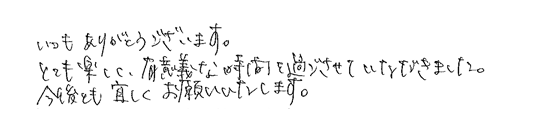 いつもありがとうございます。
とても楽しく、有意義な時間を過ごさせていただきました。
今後とも宜しくお願いいたします。